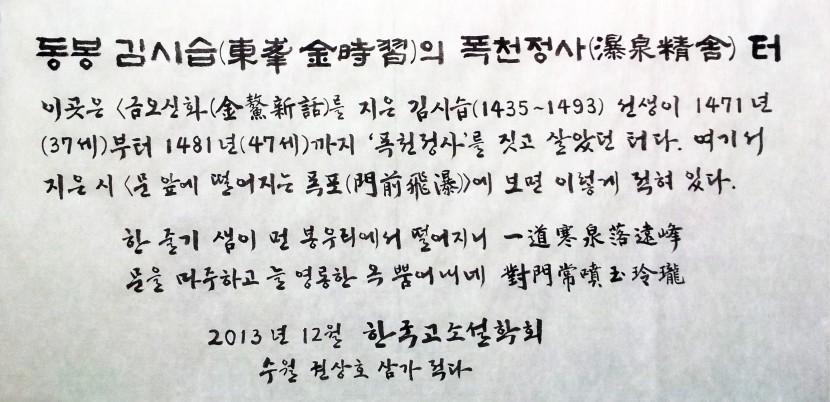 동봉 김시습(東峯 金時習)의 폭천정사(瀑泉精舍) 터
이곳은 〈금오신화(金鰲新話)를 지은 김시습(1435~1493) 선생이 1471년
(37세)부터 1481년(47세)까지 '폭천정사'를 짓고 살았던 터다. 여기서
지은 시 〈문 앞에 떨어지는 폭포(門前飛瀑)〉에 보면 이렇게 적혀 있다.
한 줄기 샘이 먼 봉우리에서 떨어지니 一道寒泉落遠峰
문을 마주하고 늘 영롱한 옥 뿜어내네 對門常噴玉玲瓏
2013년 12월 한국고소설학회
수월 권상호 삼가 적다